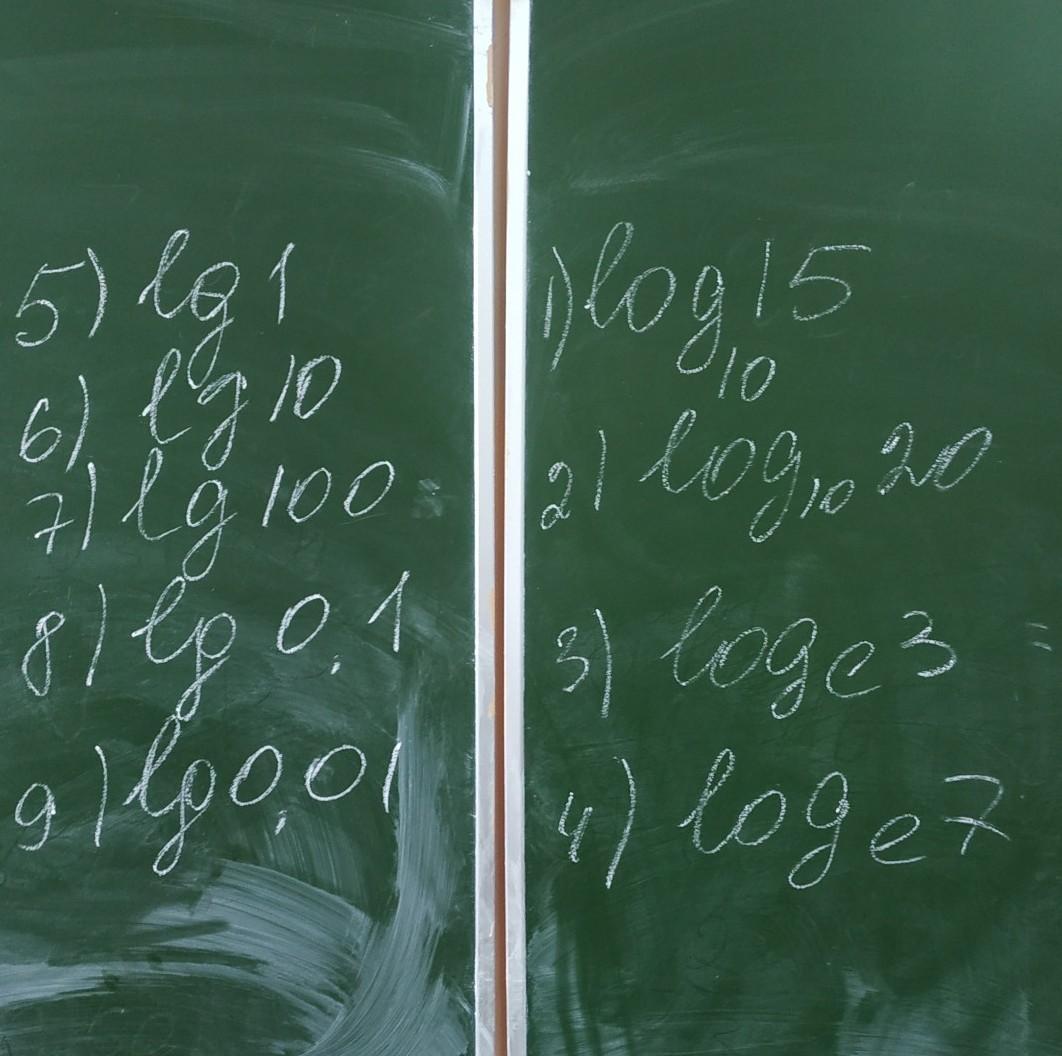 5) lg 1
6) lg 10
7) lg 100
8) lg 0,1
9) lg 0,01
1) log₁₀ 15
2) log₁₀ 20
3) logₑ 3 =
4) logₑ 7